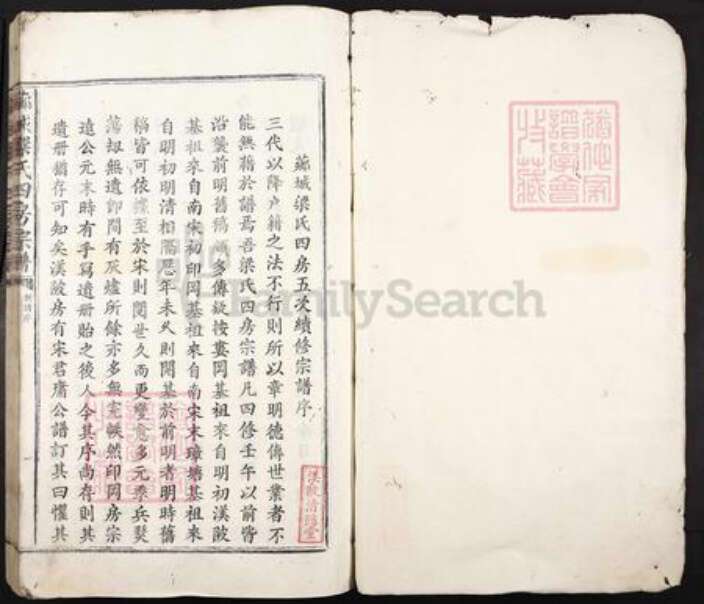 蕪城梁氏四房五次續修宗譜序
三代以降户籍之法不行則所以章明德傳世業者不
能無藉於譜焉吾梁氏四房宗譜凡四修壬午以前皆
沿襲前明舊稿 多傳疑按婁岡基祖來自明初漢陂
基祖來自南宋初印岡基祖來自南宋末璋塘基祖來
自明初明清相屬歷年未久則開基於前明者明時舊
稿皆可依據至於宋則閱世久而更變愈多元季兵燹
蕩切無遺即間有灰爐所餘亦多無完帙然印岡房宗
遠公元末時有手寫遺册貽之後人今其序尚存則其
遺册猶存可知矣漢陂房有宋君庸公譜訂其曰懼其
蕪城梁氏四房宗譜
FamilySearch